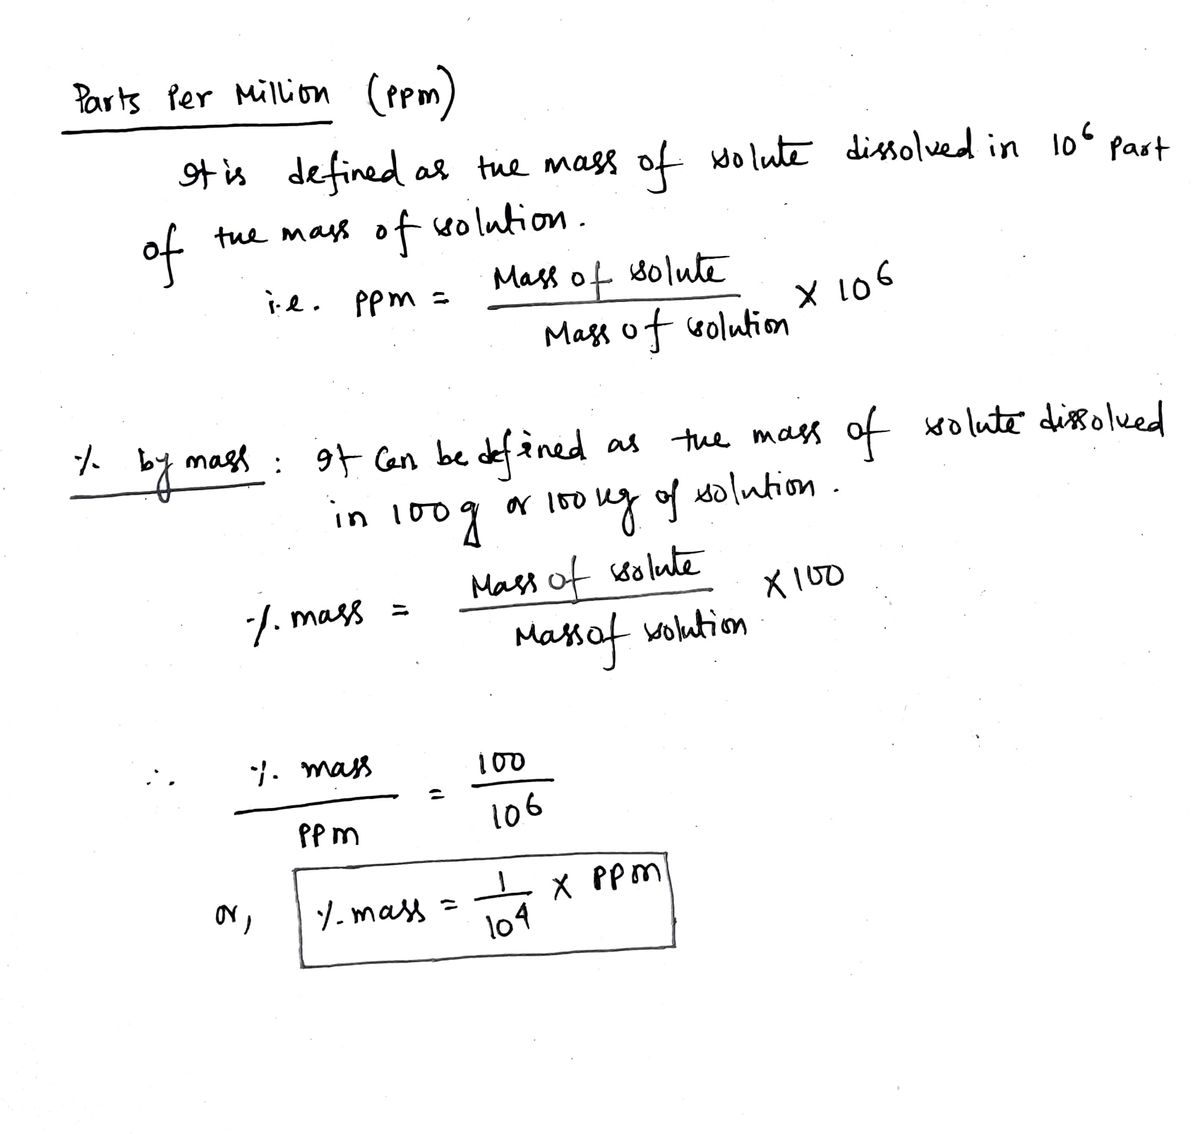 Parts Per Million (ppm)
It is defined as the mass of solute dissolved in 10⁶ part
of the mass of solution.
i.e. ppm = Mass of solute / Mass of solution × 10⁶
% by mass : It can be defined as the mass of solute dissolved
in 100g or 100 kg of solution.
% mass = Mass of solute / Mass of solution × 100
∴ % mass / ppm = 100 / 10⁶
or, % mass = 1 / 10⁴ × ppm